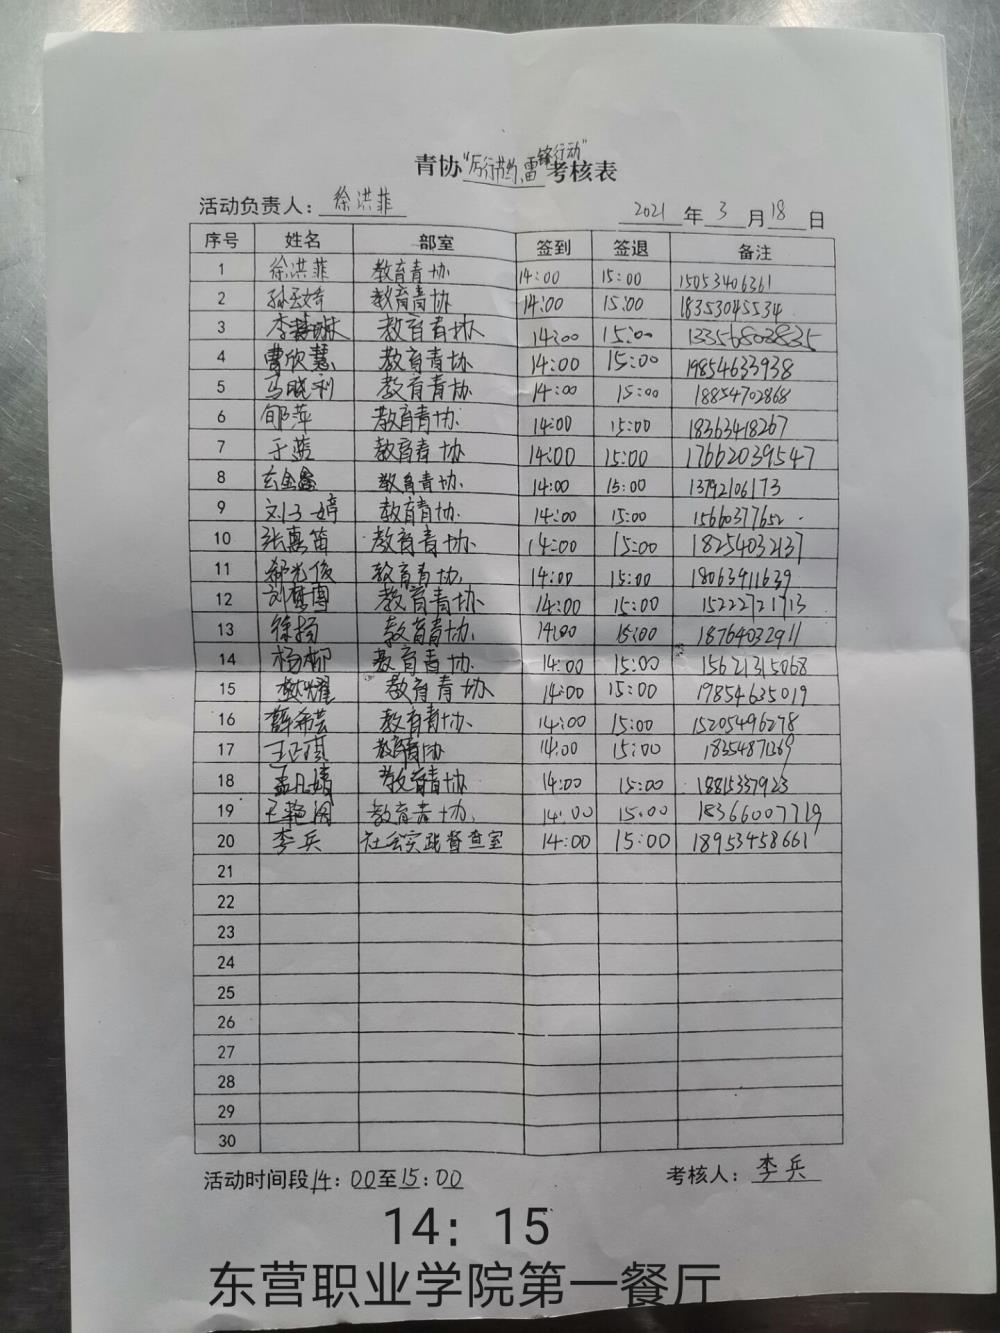 青协“厉行节约、雷锋行动”考核表
活动负责人：徐洪菲 2021年3月18日
序号 姓名 部室 签到 签退 备注
1 徐洪菲 教育青协 14:00 15:00 15053406361
2 孙玉婷 教育青协 14:00 15:00 18353045534
3 教育青协 14:00 15:00 13356803835
4 曹欣慧 教育青协 14:00 15:00 19854633938
5 马晓利 教育青协 14:00 15:00 18854702868
6 郇萍 教育青协 14:00 15:00 18363418267
7 于蓝 教育青协 14:00 15:00 17662039547
8 玄金鑫 教育青协 14:00 15:00 13792106173
9 刘子婷 教育青协 14:00 15:00 15660377652
10 张惠笛 教育青协 14:00 15:00 18254032137
11 郗光俊 教育青协 14:00 15:00 18063911639
12 刘梦博 教育青协 14:00 15:00 15222721713
13 徐杨 教育青协 14:00 15:00 18764032911
14 杨柳 教育青协 14:00 15:00 15621315068
15 教育青协 14:00 15:00 19854635019
16 薛希芸 教育青协 14:00 15:00 15205496278
17 王正琪 教育青协 14:00 15:00 18354871369
18 孟凡婧 教育青协 14:00 15:00 18815337923
19 教育青协 14:00 15:00 18366007719
20 李兵 社会实践督查室 14:00 15:00 18953458661
21
22
23
24
25
26
27
28
29
30
活动时间段14：00至15：00 考核人：李兵
14：15
东营职业学院第一餐厅